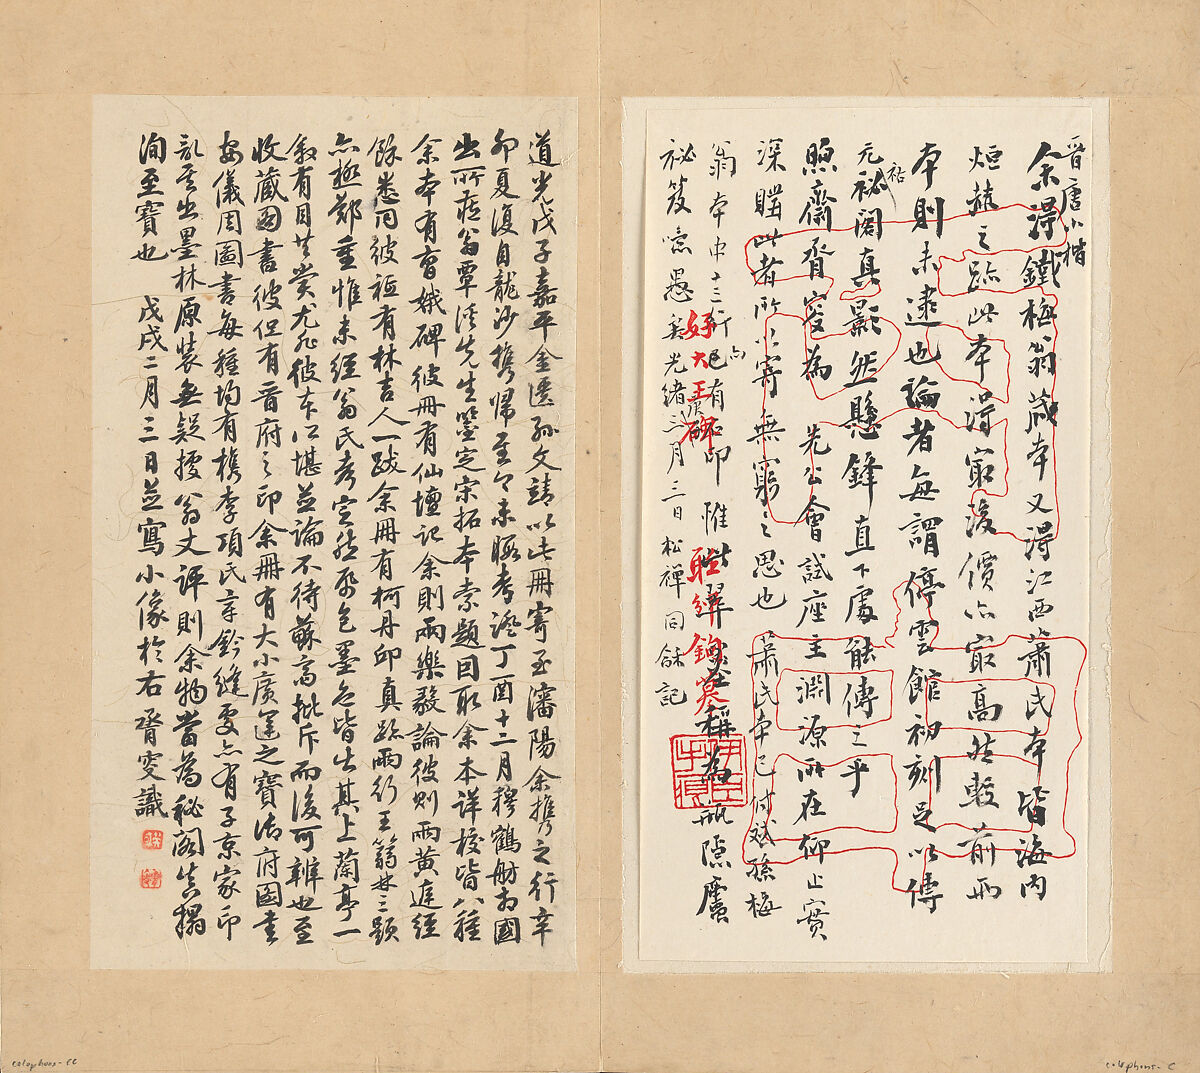 晉唐小楷
余得鐵梅翁藏本又得江西蕭氏本皆海内
炬赫之跡此本得最後價亦最高然較前兩
本則未逮也論者每謂停雲館初刻足以傳
元祐祕閣真影然懸鋒直下處能傳之乎
煦齋胥叟為 先公會試座主淵源所在仰止實
深購此者所以寄無窮之思也 蕭氏本已付斌孫梅
翁本中十三行已有印 惟此稱為 瓶隱廬
祕笈噫愚矣光緒三月三日松禪同龢記
好大王碑
鉤摹
道光戊子嘉平金匱孫文靖以此冊寄至瀋陽余攜之行辛
卯夏復自龍沙攜歸至今未暇考證丁酉十二月穆鶴舫相國
出所藏翁覃溪先生鑒定宋拓本索題因取余本詳校皆八種
余本有曹娥碑彼冊有仙壇記余則兩樂毅論彼則兩黃庭經
餘悉同彼有林吉人一跋余冊有柯丹邱真跡兩行王蒻林三題
亦極鄭重惟未經翁氏考定然紙色墨色皆出其上蘭亭一
敘有目共賞尤非彼本所堪並論不待蘇高批斥而後可辨也至
收藏圖書彼但有晉府之印余冊有大小廣運之寶府圖書
安儀周圖書每種均有檇李項氏字鈐縫處亦有子京家印
其出墨林原裝無疑據翁文評則余物當為秘閣真搨
洵至寶也 戊戌二月三日並寫小像於右 胥叟識
colophons - CC
colophons - C